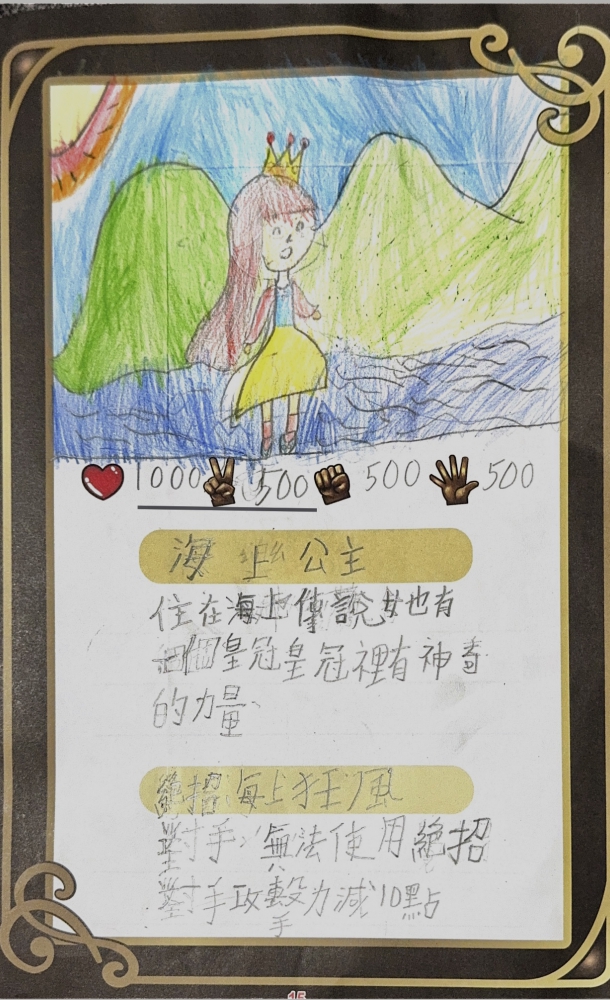 1000 500 500 500
海上公主
住在海上傳說她也有
一個皇冠皇冠裡有神奇
的力量、
絕招海上狂風
對手無法使用絕招
對手攻擊力減10點
15